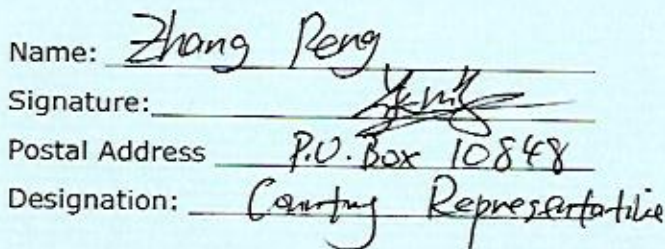 Name: Zhang Peng
Signature:
Postal Address P.O. Box 10848
Designation: Country Representative